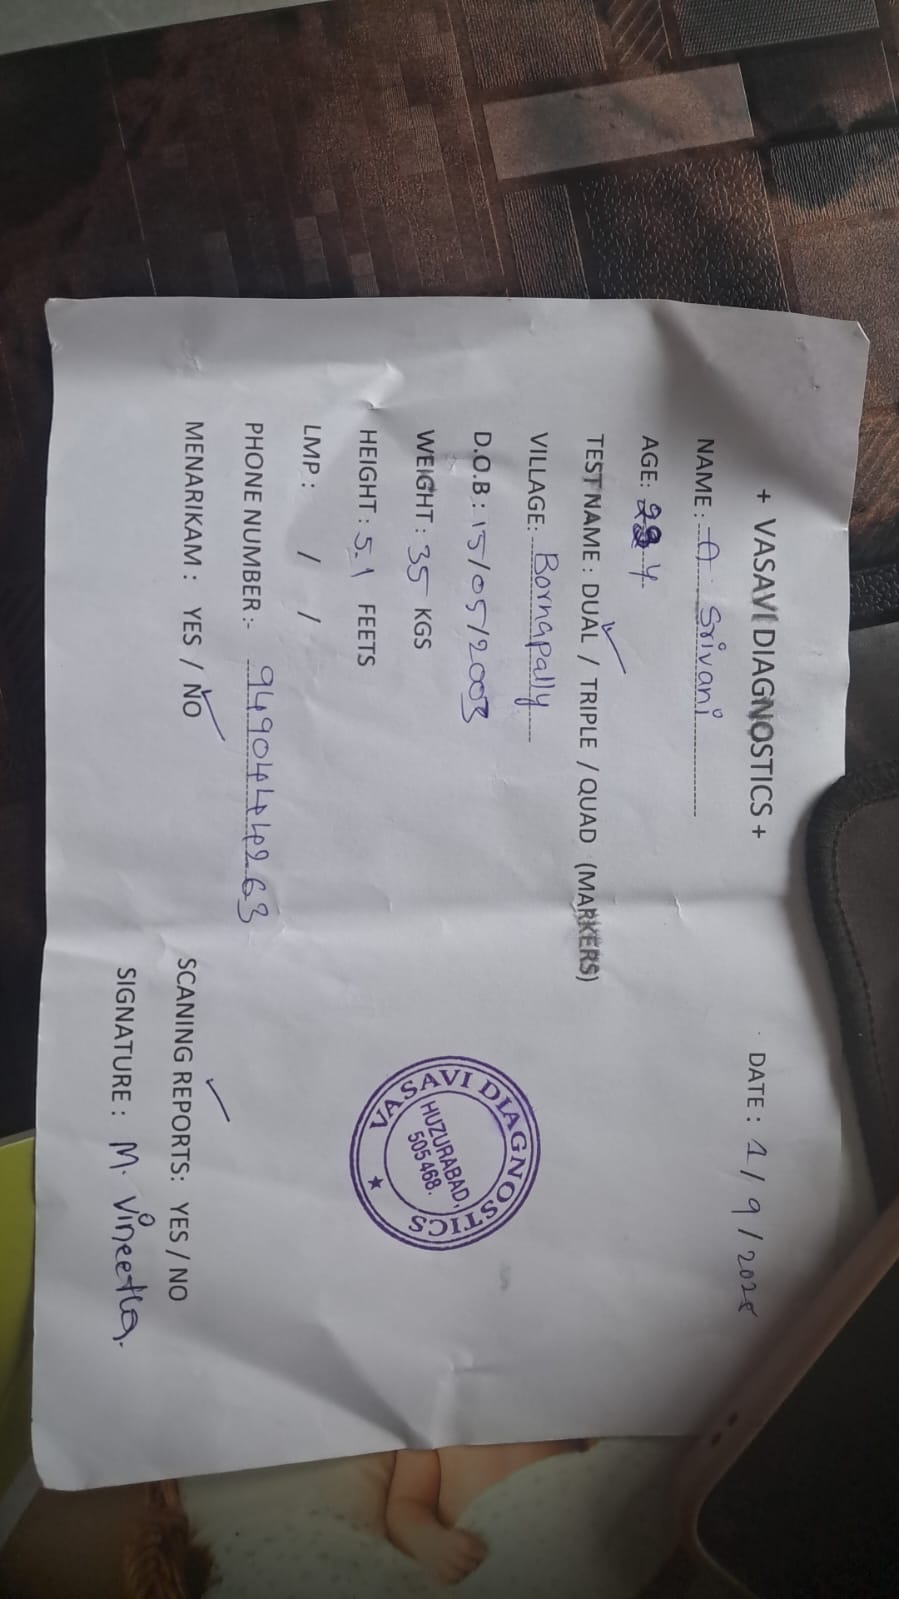 + VASAVI DIAGNOSTICS +
DATE : 1/9/2025
NAME : A. Srivani
AGE: Y
TEST NAME : DUAL / TRIPLE / QUAD (MARKERS)
VILLAGE: Bornapally
D.O.B : 15/05/2003
WEIGHT : 35 KGS
HEIGHT : 5.1 FEETS
LMP : / /
PHONE NUMBER :- 9490444263
MENARIKAM : YES / NO
SCANING REPORTS: YES / NO
SIGNATURE : M. Vineetha.
VASAVI DIAGNOSTICS
HUZURABAD,
505468.